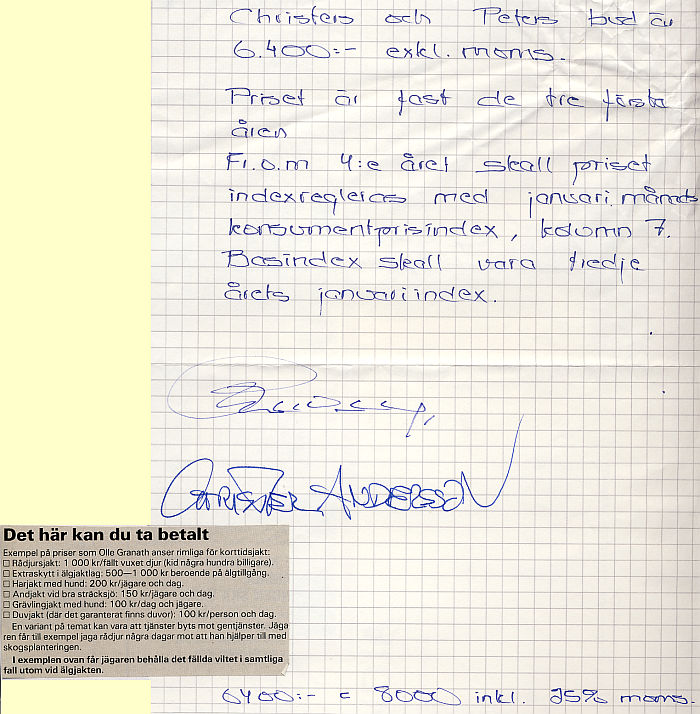 Christers och Peters bud är
6.400:- exkl. moms.
Priset är fast de tre första
åren
Fr.o.m 4:e året skall priset
indexregleras med januari månads
konsumentprisindex, kolumn 7.
Basindex skall vara tredje
årets januariindex.
CHRISTER ANDERSSON
Det här kan du ta betalt
Exempel på priser som Olle Granath anser rimliga för korttidsjakt:
☐ Rådjursjakt: 1 000 kr/fällt vuxet djur (kid några hundra billigare).
☐ Extraskytt i älgjaktlag: 500—1 000 kr beroende på älgtillgång.
☐ Harjakt med hund: 200 kr/jägare och dag.
☐ Andjakt vid bra sträcksjö: 150 kr/jägare och dag.
☐ Grävlingjakt med hund: 100 kr/dag och jägare.
☐ Duvjakt (där det garanterat finns duvor): 100 kr/person och dag.
En variant på temat kan vara att tjänster byts mot gentjänster. Jäga
ren får till exempel jaga rådjur några dagar mot att han hjälper till med
skogsplanteringen.
I exemplen ovan får jägaren behålla det fällda viltet i samtliga
fall utom vid älgjakten.
6400:- = 8000 inkl. 25% moms.